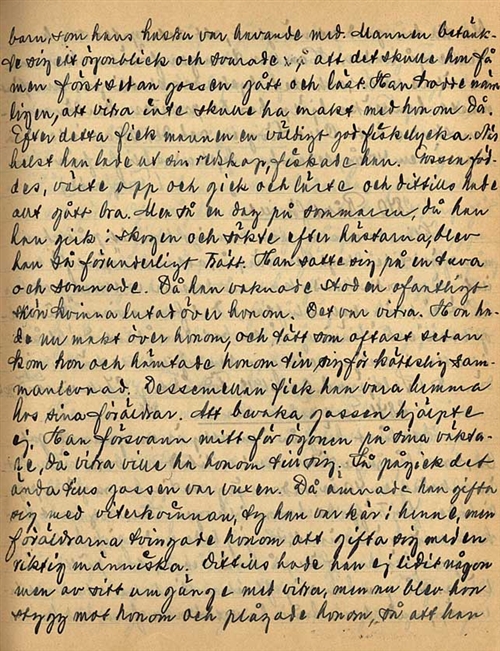 barn, som hans hustru var havande med. Mannen betänk-
te sig ett ögonblick och svarade, att det skulle hon få
men först sedan gossen gått och läst. Han trodde näm-
ligen, att vitra inte skulle ha makt med honom då.
Efter detta fick mannen en väldigt god fiskelycka. När
helst han lade ut sin redskap, fiskade han. Gossen föd-
des, växte opp och gick och läste och dittills hade
allt gått bra. Men så en dag på sommaren, då han
han gick i skogen och sökte efter hästarna, blev
han så föränderligt trött. Han satte sig på en tuva
och somnade. Då han vaknade stod en ofantligt
skön kvinna lutad över honom. Det var vitra. Hon ha-
de nu makt över honom, och tätt som oftast sedan
kom hon och hämtade honom till sig för köttslig sam-
manlevnad. Dessemellan fick han vara hemma
hos sina föräldrar. Att bevaka gossen hjälpte
ej. Han försvann mitt för ögonen på sina väkta-
re, då vitra ville ha honom till sig. Så pågick det
ända tills gossen var vuxen. Då ämnade han gifta
sig med viterkvinnan, ty han var kär i henne, men
föräldrarna tvingade honom att gifta sig med en
riktig människa. Dittills hade han ej lidit någon
men av sitt umgänge med vitra, men nu blev hon
stygg mot honom och plågade honom, så att han